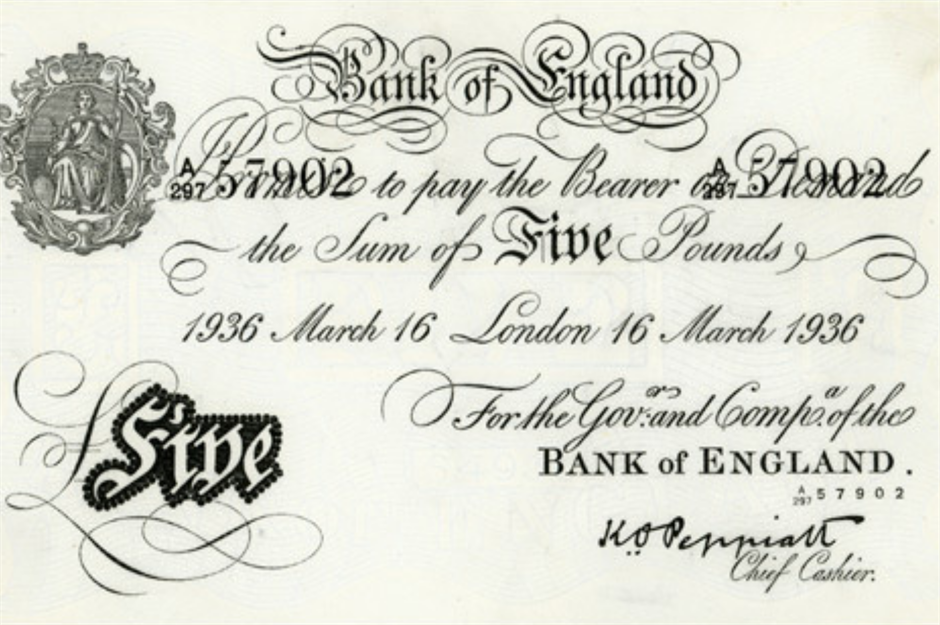 Bank of England
A/297 57902 Promise to pay the Bearer on Demand A/297 57902
the Sum of Five Pounds
1936 March 16 London 16 March 1936
For the Govr. and Compa. of the
BANK of ENGLAND.
A/297 57902
£Five
K.O. Peppiatt
Chief Cashier.